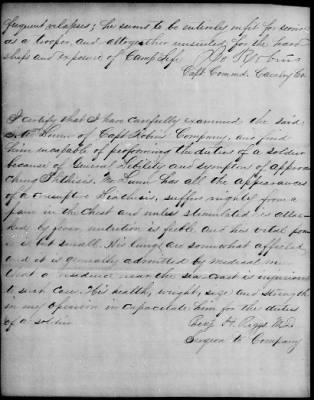 frequent relapses; he seems to be entirely unfit for service
as a trooper and altogether unsuited for the hard
ships and exposure of Camp Life
Capt Commd. Cavalry Co
I certify that I have carefully examined the said
of Capt Robins Company, and find
him incapable of performing the duties of a soldier
because of General Debility and symptoms of approa
ching Pthisis. Mr Lunn has all the appearances
of a Diathesis, suffers nightly from a
pain in the Chest and unless stimulated is attac-
ked by fever nutrition is feeble and his vital powe
is but small. His lungs are somewhat affected
and it is generally admitted by medical men
that a residence near the sea-coast is injurious
to such Case. His health, weight, size and strength
in my opinion incapacitate him for the duties
of a soldier
Benj. H. Riggs M.D.
Surgeon to Company